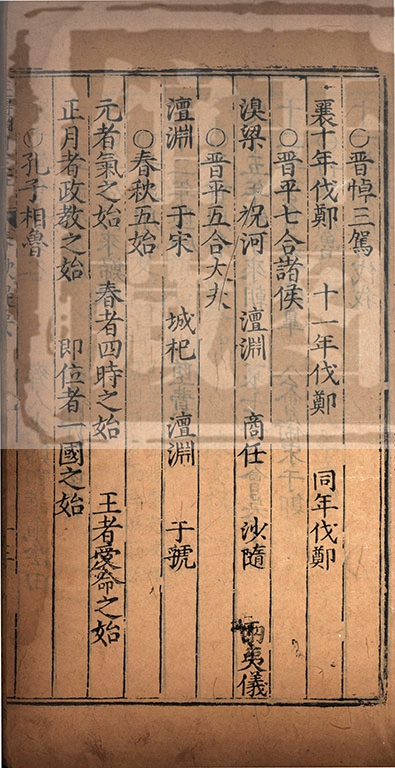 ○晋悼三駕
襄十年伐鄭 十一年伐鄭 同年伐鄭
○晋平七合諸侯
溴梁 况河 澶淵 商任 沙隨 夷儀
○晋平五合大夫
澶淵 于宋 城杞 澶淵 于號
○春秋五始
元者氣之始 春者四時之始 王者受命之始
正月者政教之始 即位者一國之始
○孔子相魯